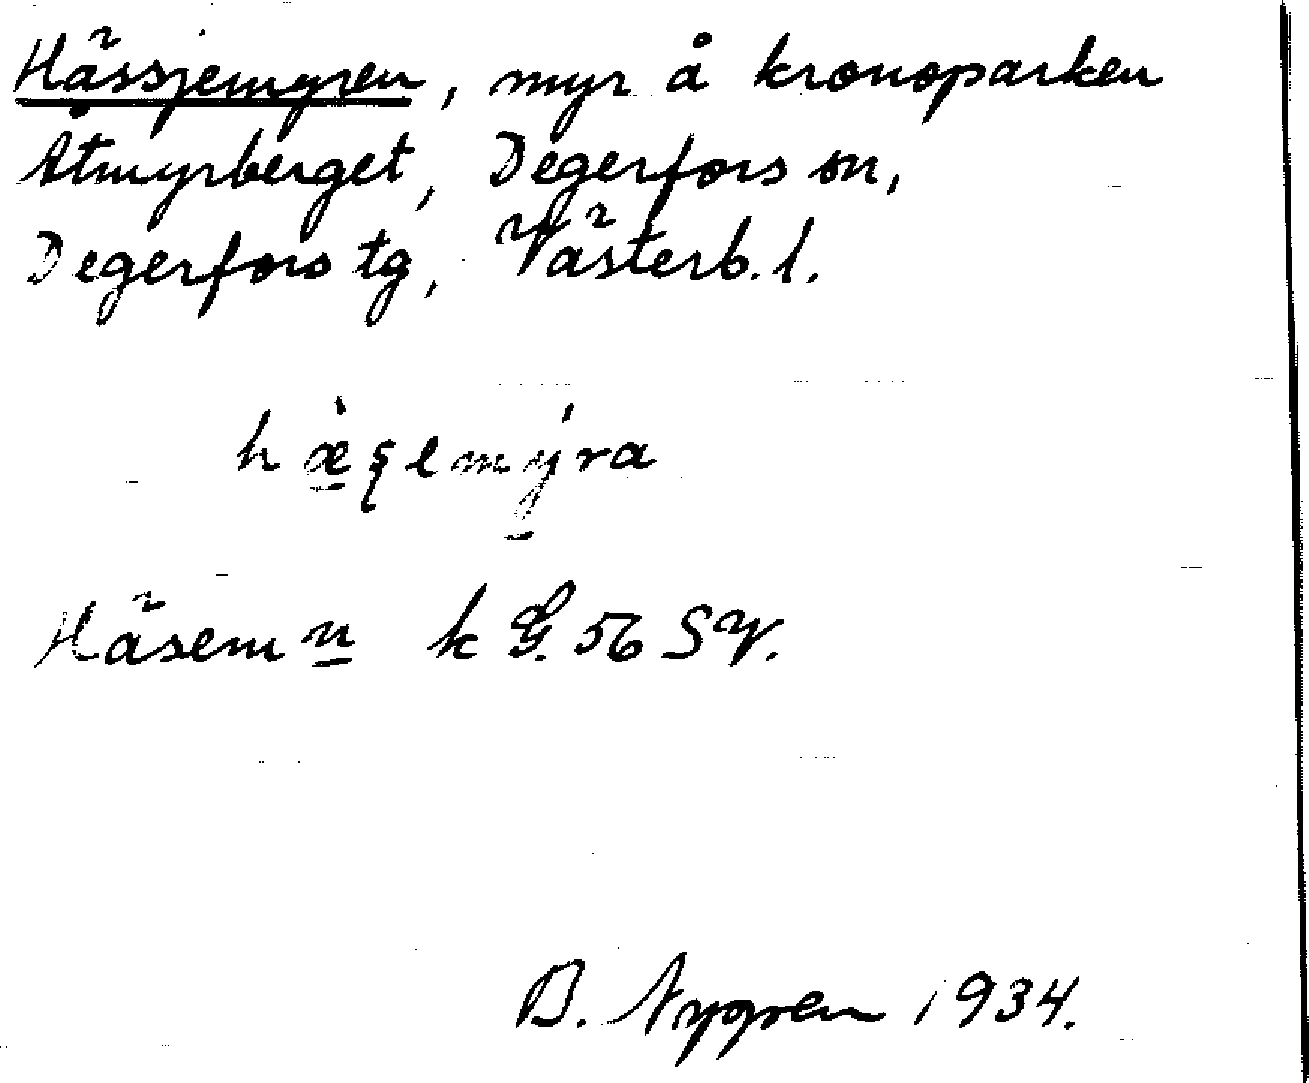 Hässjemyren, myr å kronoparken
Åtmyrberget, Degerfors sn,
Degerfors tg, Västerb. l.
hæ̀ʂemýra
Häsemn k G. 56 SV.
B. Nygren 1934.